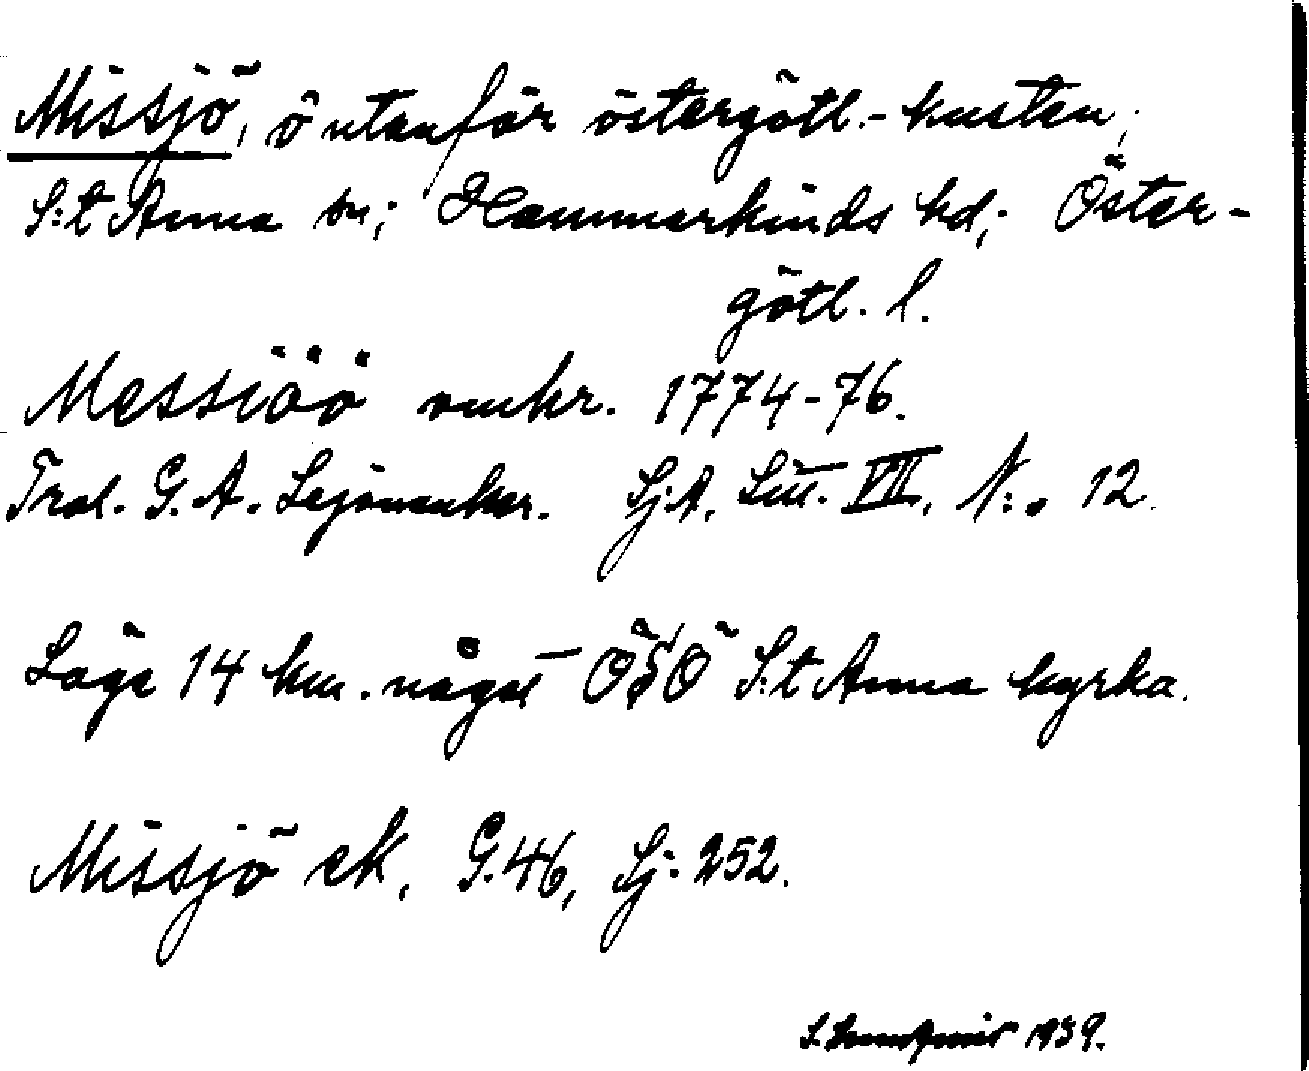 Missjö, ö utanför östergötl.-kusten;
S:t Anna sn; Hammarkinds hd; Öster-
götl. l.
Messiöö omkr. 1774-76.
Trol. G. A. Lejonanker. Sj.A. Litt. VII, N:o 12.
Läge 14 km. något ÖSÖ S:t Anna kyrka.
Missjö ek, G.46, Sj. 252.
1939.